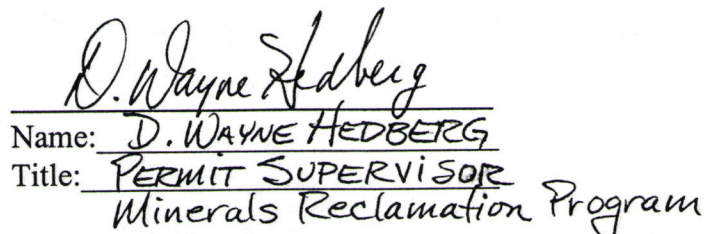 D. Wayne Hedberg
Name: D. WAYNE HEDBERG
Title: PERMIT SUPERVISOR
Minerals Reclamation Program